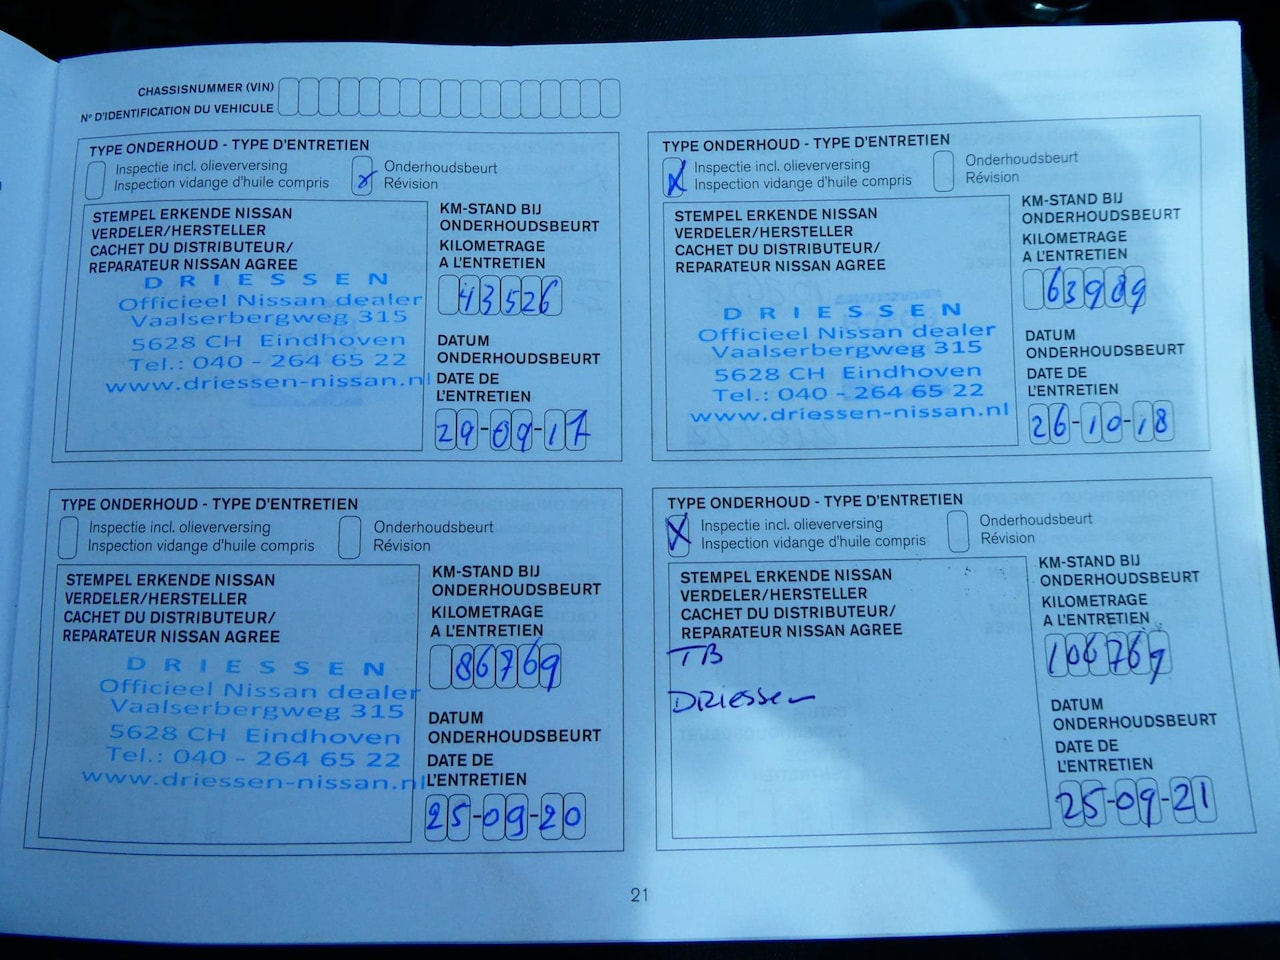 CHASSISNUMMER (VIN)
Nº D'IDENTIFICATION DU VEHICULE
TYPE ONDERHOUD - TYPE D'ENTRETIEN
Inspectie incl. olieverversing
Inspection vidange d'huile compris
Onderhoudsbeurt
Révision
STEMPEL ERKENDE NISSAN
VERDELER/HERSTELLER
CACHET DU DISTRIBUTEUR/
REPARATEUR NISSAN AGREE
DRIESSEN
Officieel Nissan dealer
Vaalserbergweg 315
5628 CH Eindhoven
Tel.: 040 - 264 65 22
www.driessen-nissan.nl
KM-STAND BIJ
ONDERHOUDSBEURT
KILOMETRAGE
A L'ENTRETIEN
43526
DATUM
ONDERHOUDSBEURT
DATE DE
L'ENTRETIEN
29-09-17
TYPE ONDERHOUD - TYPE D'ENTRETIEN
X
Inspectie incl. olieverversing
Inspection vidange d'huile compris
Onderhoudsbeurt
Révision
STEMPEL ERKENDE NISSAN
VERDELER/HERSTELLER
CACHET DU DISTRIBUTEUR/
REPARATEUR NISSAN AGREE
DRIESSEN
Officieel Nissan dealer
Vaalserbergweg 315
5628 CH Eindhoven
Tel.: 040 - 264 65 22
www.driessen-nissan.nl
KM-STAND BIJ
ONDERHOUDSBEURT
KILOMETRAGE
A L'ENTRETIEN
63989
DATUM
ONDERHOUDSBEURT
DATE DE
L'ENTRETIEN
26-10-18
TYPE ONDERHOUD - TYPE D'ENTRETIEN
Inspectie incl. olieverversing
Inspection vidange d'huile compris
Onderhoudsbeurt
Révision
STEMPEL ERKENDE NISSAN
VERDELER/HERSTELLER
CACHET DU DISTRIBUTEUR/
REPARATEUR NISSAN AGREE
DRIESSEN
Officieel Nissan dealer
Vaalserbergweg 315
5628 CH Eindhoven
Tel.: 040 - 264 65 22
www.driessen-nissan.nl
KM-STAND BIJ
ONDERHOUDSBEURT
KILOMETRAGE
A L'ENTRETIEN
86769
DATUM
ONDERHOUDSBEURT
DATE DE
L'ENTRETIEN
25-09-20
TYPE ONDERHOUD - TYPE D'ENTRETIEN
X
Inspectie incl. olieverversing
Inspection vidange d'huile compris
Onderhoudsbeurt
Révision
STEMPEL ERKENDE NISSAN
VERDELER/HERSTELLER
CACHET DU DISTRIBUTEUR/
REPARATEUR NISSAN AGREE
TB
DRIESSEN
KM-STAND BIJ
ONDERHOUDSBEURT
KILOMETRAGE
A L'ENTRETIEN
106769
DATUM
ONDERHOUDSBEURT
DATE DE
L'ENTRETIEN
25-09-21
21